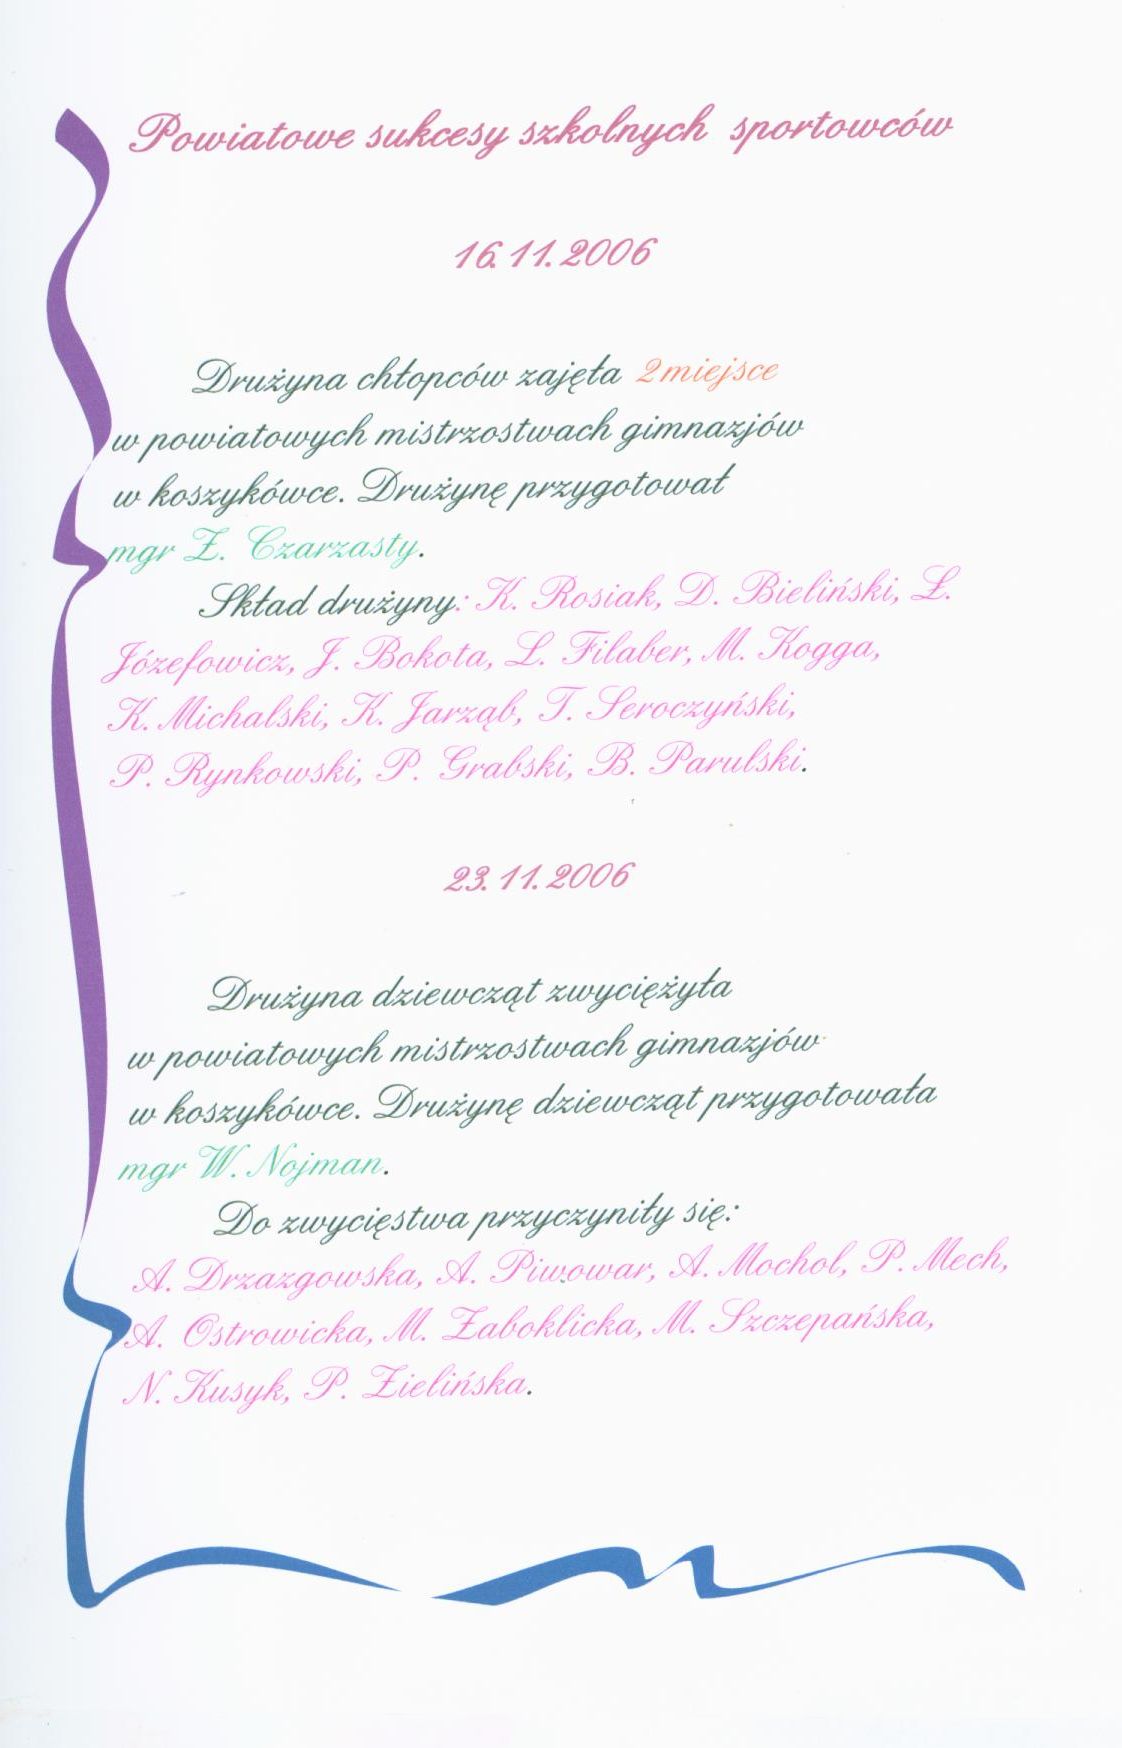 Powiatowe sukcesy szkolnych sportowców
16.11.2006
Drużyna chłopców zajęła 2miejsce
w powiatowych mistrzostwach gimnazjów
w koszykówce. Drużynę przygotował
mgr Z. Czarzasty.
Skład drużyny: K. Rosiak, D. Bieliński, Ł.
Józefowicz, J. Bokota, L. Filaber, M. Kogga,
K. Michalski, K. Jarząb, T. Seroczyński,
P. Rynkowski, P. Grabski, B. Parulski.
23.11.2006
Drużyna dziewcząt zwyciężyła
w powiatowych mistrzostwach gimnazjów
w koszykówce. Drużynę dziewcząt przygotowała
mgr W. Nojman.
Do zwycięstwa przyczyniły się:
A. Drzazgowska, A. Piwowar, A. Mochol, P. Mech,
A. Ostrowicka, M. Zaboklicka, M. Szczepańska,
N. Kusyk, P. Zielińska.